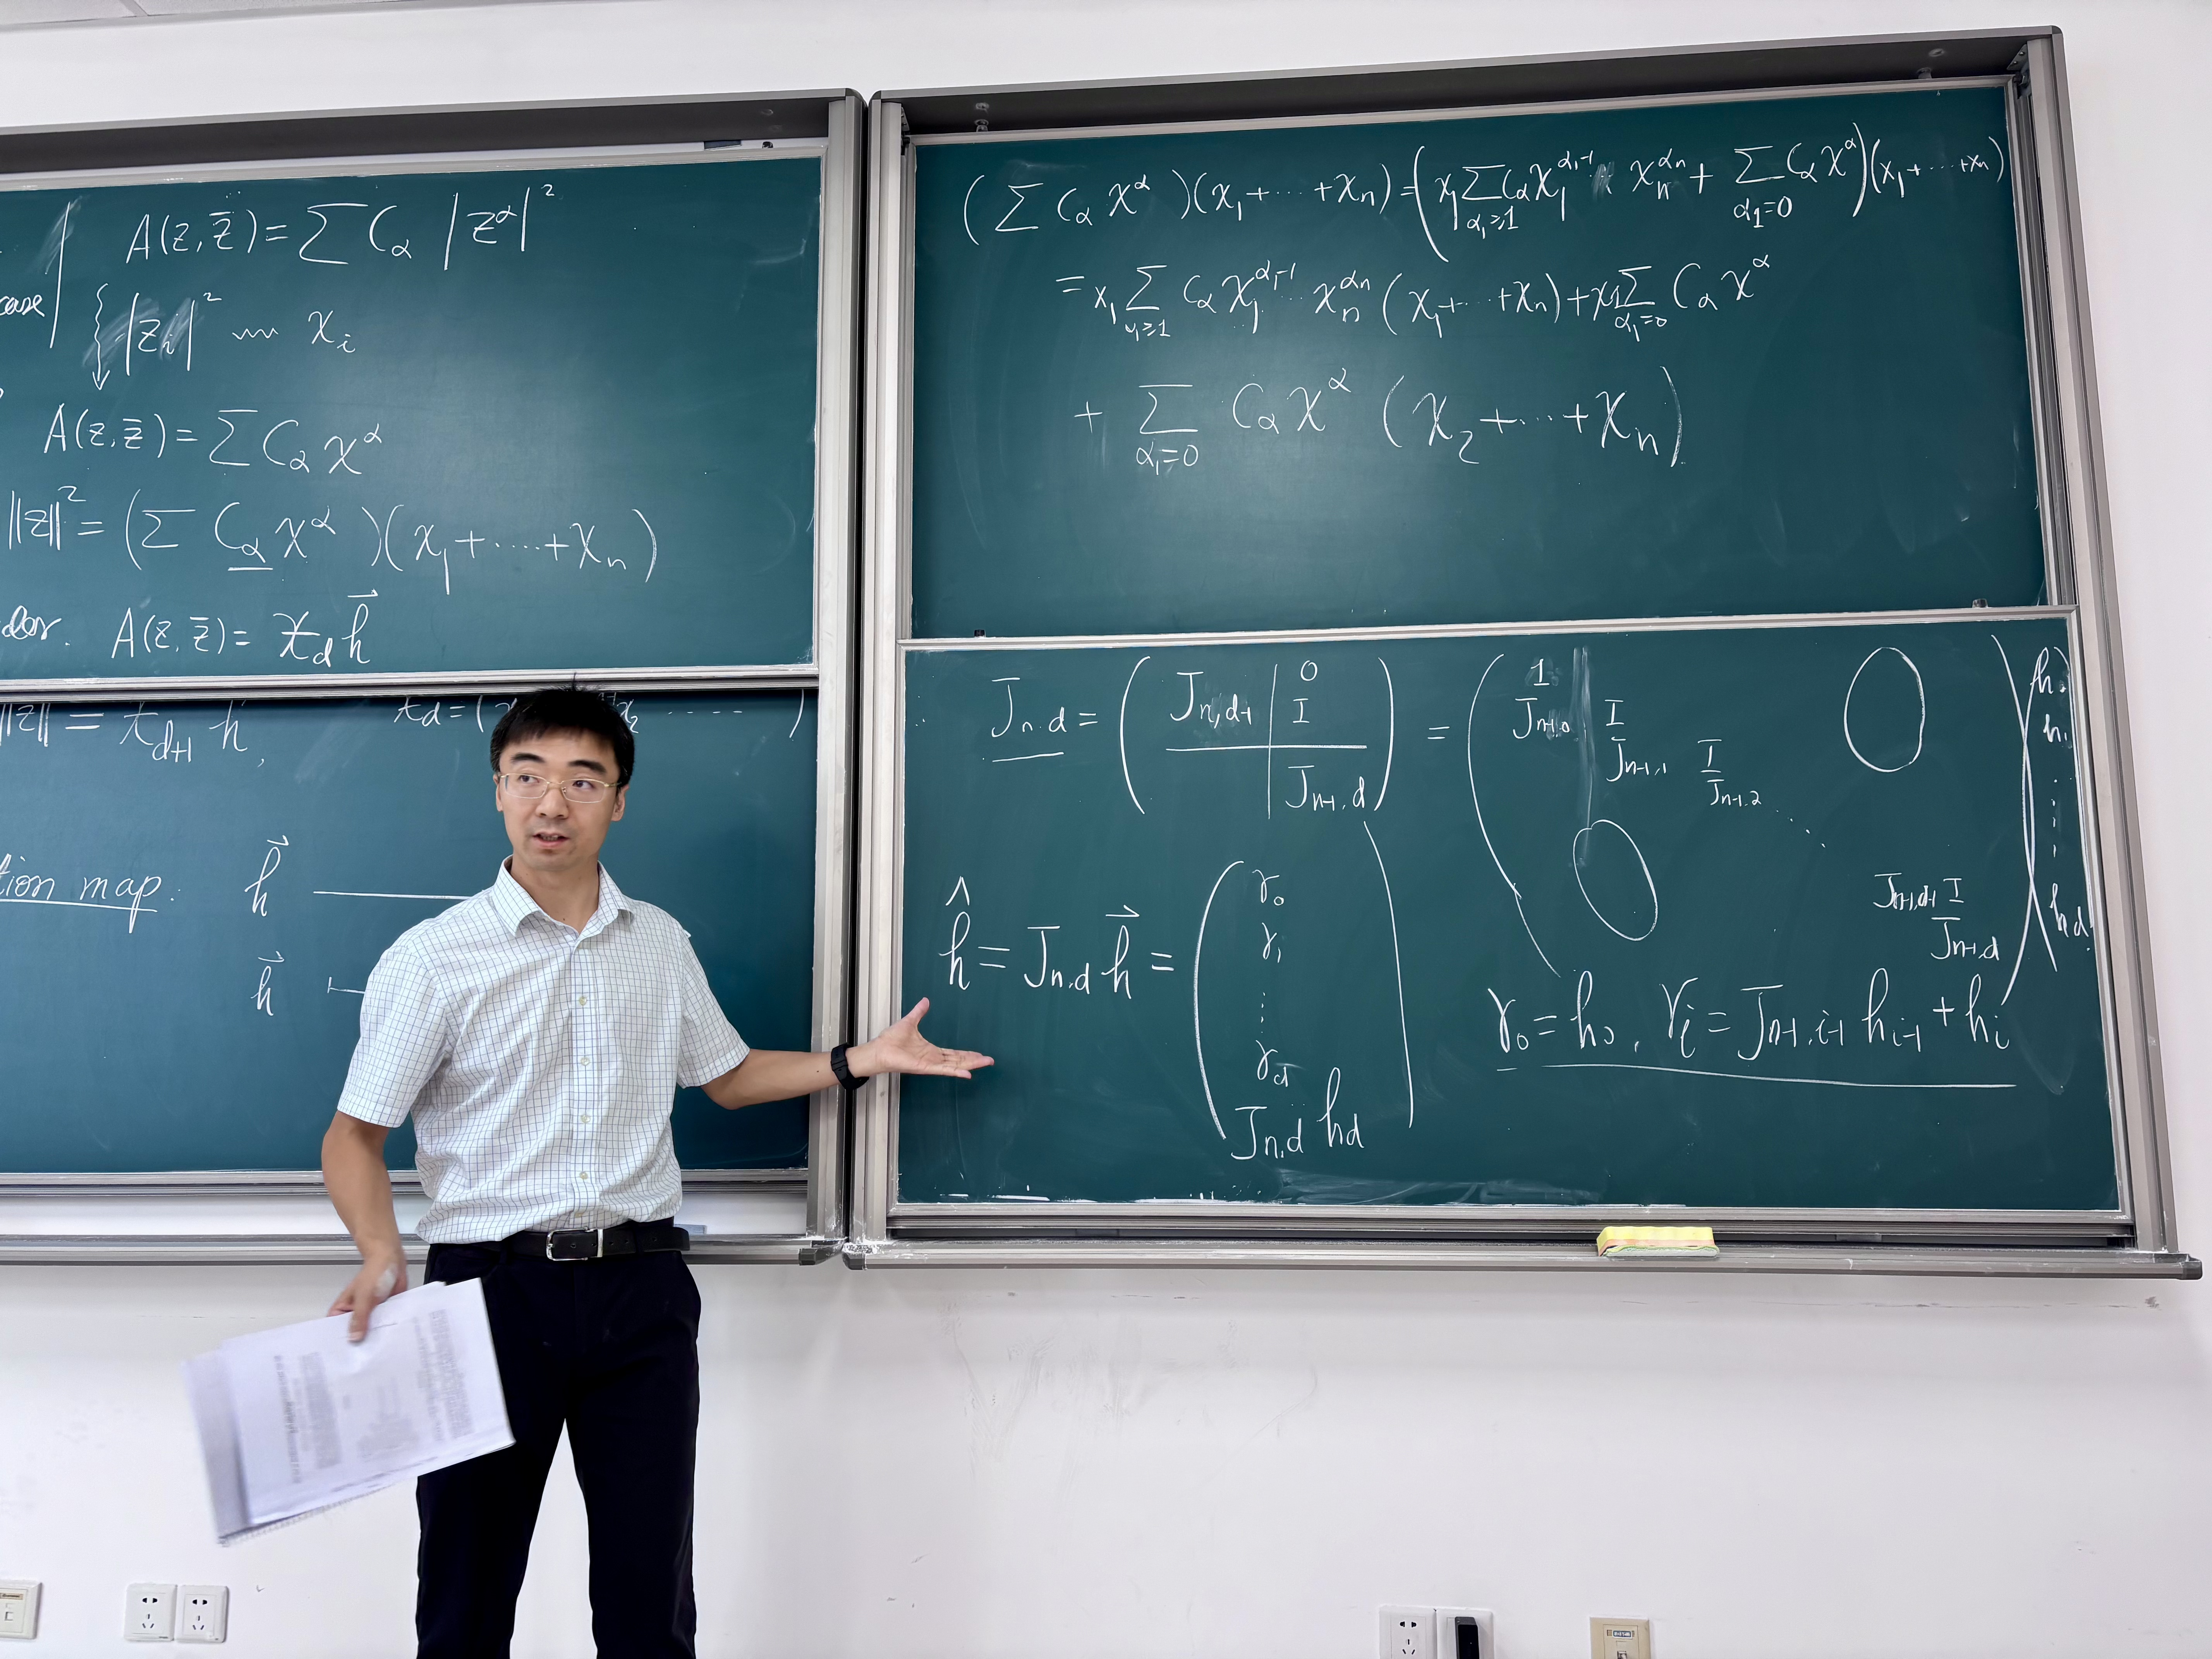 case
A(z, z̄) = ∑ C_α |z^α|²
|z_i|² 〰 x_i
A(z, z̄) = ∑ C_α x^α
‖z‖² = (∑ C_α x^α)(x_1 + ⋯ + x_n)
der. A(z, z̄) = x_d h⃗
‖z‖ = x_{d+1} h,
x_d = ( x_2 ⋯ )
tion map: h⃗
h⃗
(∑ C_α x^α)(x_1 + ⋯ + x_n) = (x_1 ∑_{α_1≥1} C_α x_1^{α_1-1} ⋯ x_n^{α_n} + ∑_{α_1=0} C_α x^α)(x_1 + ⋯ + x_n)
= x_1 ∑_{α_1≥1} C_α x_1^{α_1-1} ⋯ x_n^{α_n} (x_1 + ⋯ + x_n) + x_1 ∑_{α_1=0} C_α x^α
+ ∑_{α_1=0} C_α x^α (x_2 + ⋯ + x_n)
J_{n,d} = ( J_{n,d-1} | 0 I
J_{n-1,d} ) = ( 1
J_{n-1,0} I
J_{n-1,1} I
J_{n-1,2} ⋱
J_{n-1,d-1} I
J_{n-1,d} ) ( h_0
h_1
⋮
h_d )
ĥ = J_{n,d} h⃗ = ( γ_0
γ_1
⋮
γ_d
J_{n,d} h_d )
γ_0 = h_0, γ_i = J_{n-1,i-1} h_{i-1} + h_i